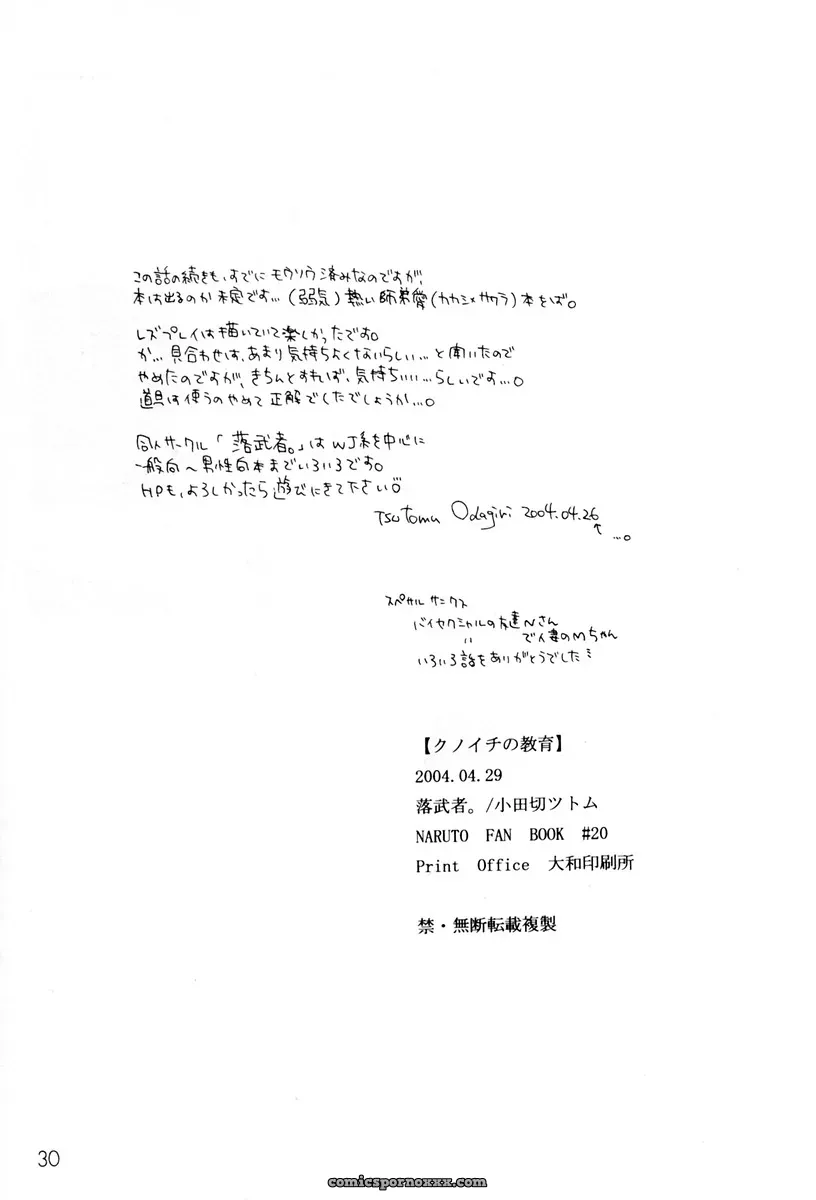 この話の続きも、すでにモウソウ済みなのですが、
本は出るのか未定です…(弱気)熱い師弟愛(カカシ×サクラ)本をば。
レズプレイは描いていて楽しかったです。
が…見合わせは、あまり気持ちよくないらしい…と聞いたので
やめたのですが、きちんとすれば、気持ちいい…らしいです…。
道具は使うのやめて正解でしたでしょうか…。
同人サークル「落武者。」はWJ系を中心に
一般向~男性向本までいろいろです。
HPも、よろしかったら遊びにきて下さい
Tsutomu Odagiri 2004.04.26
↑
…。
スペサルサンクス
バイセクシャルの友達Nさん
〃 で人妻のMちゃん
いろいろ話をありがとうでした
【クノイチの教育】
2004.04.29
落武者。/小田切ツトム
NARUTO FAN BOOK #20
Print Office 大和印刷所
禁・無断転載複製
30
comicspornoxxx.com